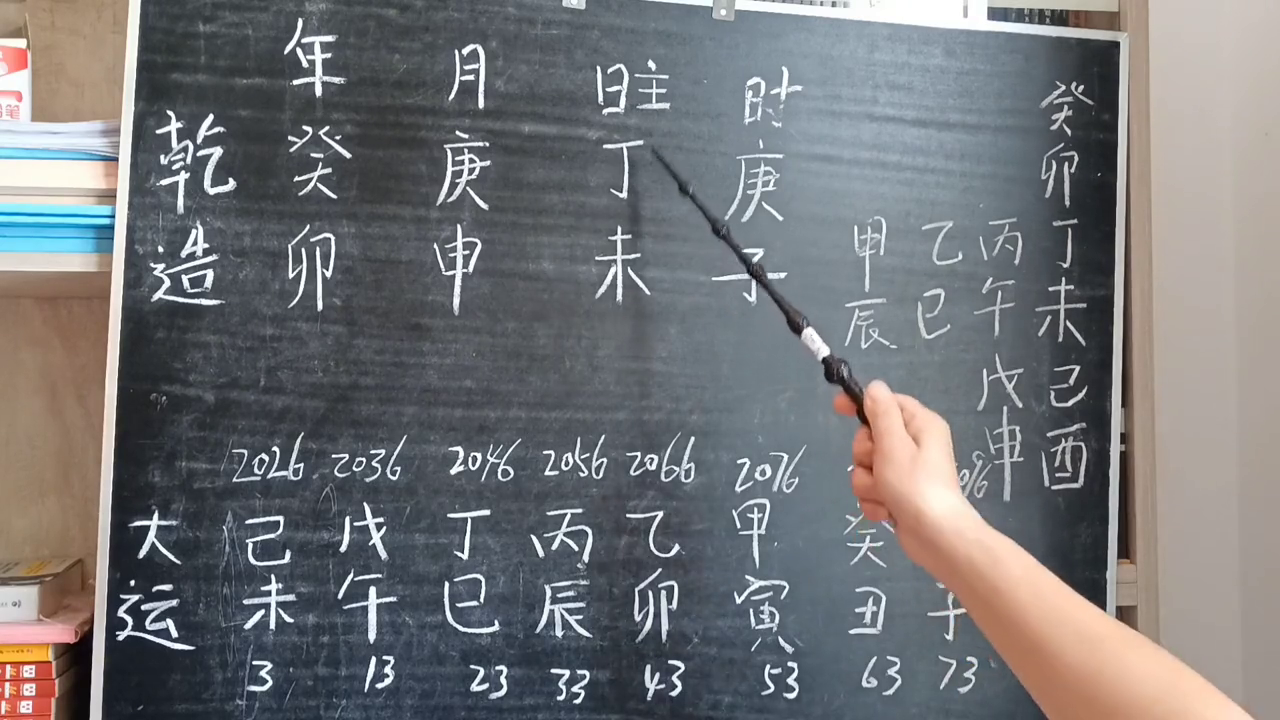 年 月 日主 时
乾造
癸 庚 丁 庚
卯 申 未 子
甲辰
乙巳
丙午
戊申
癸卯
丁未
己酉
2026 2036 2046 2056 2066 2076
大运
己 戊 丁 丙 乙 甲 癸
未 午 巳 辰 卯 寅 丑 子
3 13 23 33 43 53 63 73